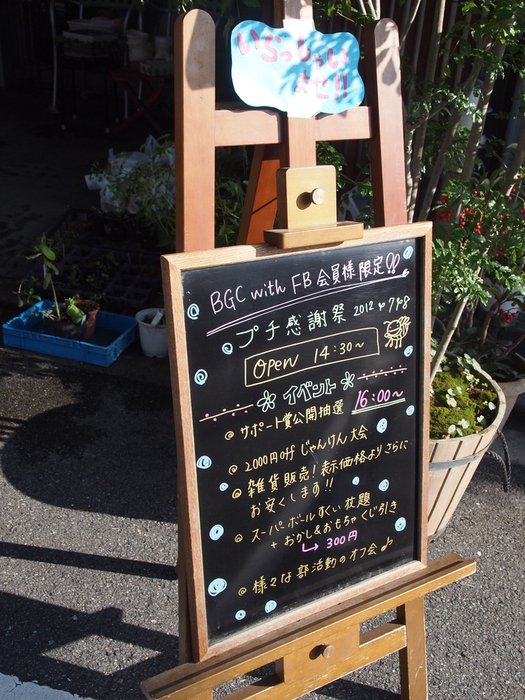 いらっしゃい
ませ!!
BGC with FB 会員様限定!!
プチ感謝祭 2012
OPEN 14:30~
イベント
16:00~
@ サポート賞公開抽選
@ 2000円off じゃんけん大会
@ 雑貨販売!表示価格よりさらに
お安くします!!
@ スーパーボールすくい放題
+ おかし&おもちゃくじ引き
300円
@ 様々な部活動のオフ会♪